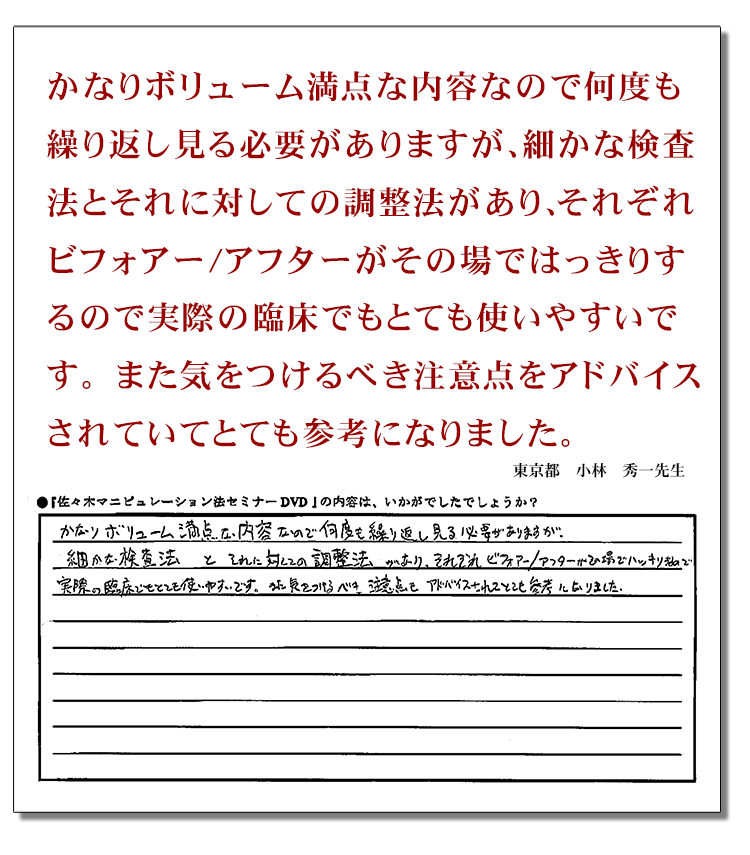 かなりボリューム満点な内容なので何度も
繰り返し見る必要がありますが、細かな検査
法とそれに対しての調整法があり、それぞれ
ビフォアー/アフターがその場ではっきりす
るので実際の臨床でもとても使いやすいで
す。また気をつけるべき注意点をアドバイス
されていてとても参考になりました。
東京都 小林 秀一先生
●『佐々木マニピュレーション法セミナーDVD』の内容は、いかがでしたでしょうか？
かなりボリューム満点な内容なので何度も繰り返し見る必要がありますが、
細かな検査法 と それに対しての調整法 があり、それぞれ ビフォアー/アフターがその場でハッキリするので
実際の臨床でもとても使いやすいです。また気をつけるべき 注意点も アドバイスされてとても参考になりました。